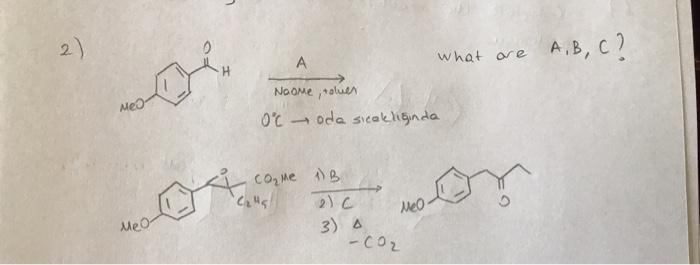 2)
O
H
MeO
A
NaOMe, toluen
0°C → oda sıcaklığında
what are A, B, C?
O
CO2Me
C2H5
MeO
1) B
2) C
3) Δ
-CO2
MeO
O